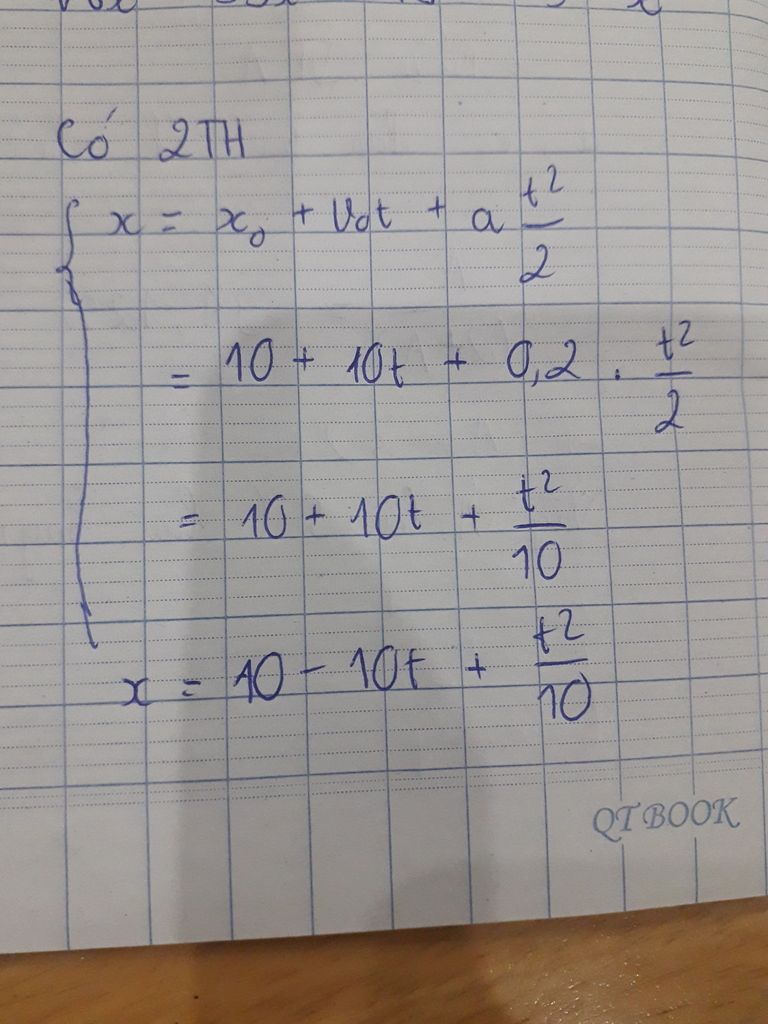 Có 2TH
x = x₀ + v₀t + a t²/2
= 10 + 10t + 0,2 . t²/2
= 10 + 10t + t²/10
x = 10 - 10t + t²/10
QTBOOK